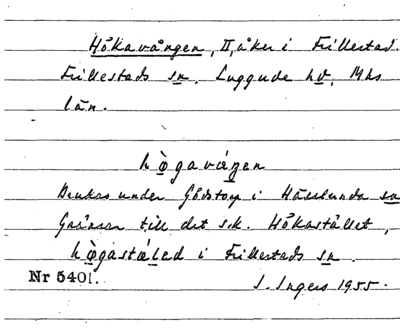 Håkavången, II, åker i Frillestad.
Frillestads sn. Luggude hd, Mhs
län.
hǫgavaŋen
Brukas under Gödstorp i Hässlunda sn
Gränsar till det s.k. Håkastället,
hǫgastæled i Frillestads sn.
Nr 5401.
I. Ingers 1955.